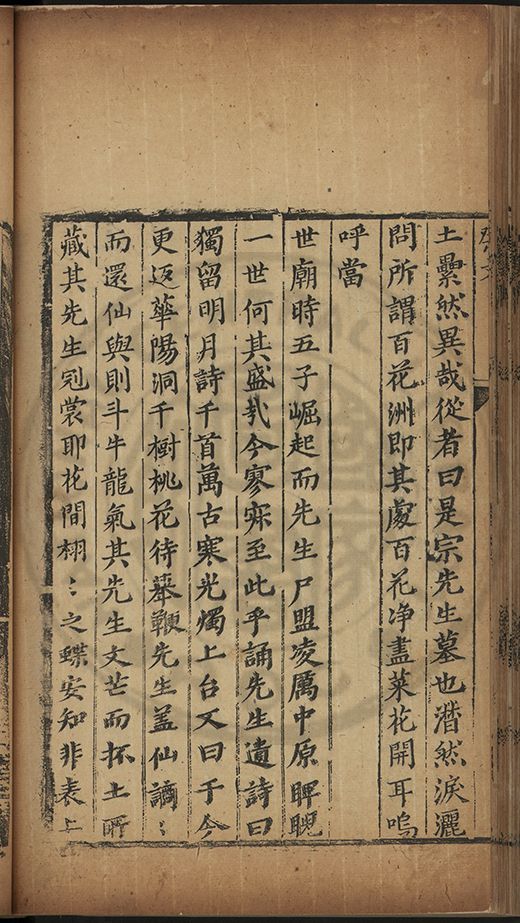 土纍然異哉從者曰是宗先生墓也潸然淚灑
問所謂百花洲即其處百花净盡菜花開耳嗚
呼當
世廟時五子崛起而先生尸盟凌厲中原睥睨
一世何其盛哉今寥寀至此乎誦先生遺詩曰
獨留明月詩千首萬古寒光燭上台又曰于今
更返華陽洞千樹桃花待舉鞭先生盖仙謫〻
而還仙與則斗牛龍氣其先生文芒而抔土所
藏其先生冠裳耶花間栩〻之蝶安知非表上